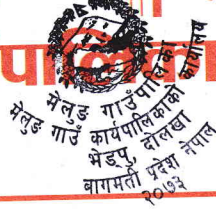 पालिका
मेलुङ गाउँपालिका
मेलुङ गाउँ कार्यपालिकाको कार्यालय
भेड्पु, दोलखा
बागमती प्रदेश नेपाल
२०७३